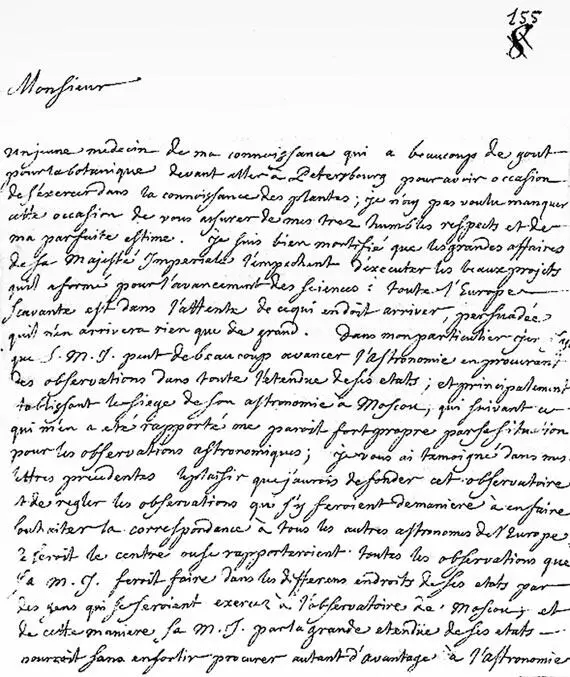 155
8
Monsieur
un jeune medecin de ma connoissance qui a beaucoups de gout
pour la botanique devant aller à Petersbourg pour avoir occasion
de s'exercer dans la connoissance des plantes; je n'ay pas voulu manquer
cette occasion de vous assurer de mes trez humbles respects et de
ma parfaite estime. je suis bien mortifié que les grandes affaires
de sa Majesté Imperiale l'empechent d'executer les beaux projets
qu'il a formé pour l'avancement des sciences: toute l'Europe
scavante est dans l'attente de ce qui en doit arriver, persuadée
qu'il n'en arrivera rien que de grand. Dans mon particulier je
que S. M. I. peut de beaucoup avancer l'astronomie en procurant
des observations dans toute l'etendue de ses etats; et principalement
etablissant le siege de son astronomie à Moscou, qui suivant ce
qui m'en a eté rapporté me paroit fort propre par sa situation
pour les observations astronomiques; je vous ai temoigné dans mes
lettres precedentes le plaisir que j'aurois de fonder cet observatoire
et de regler les observations que s'y feroient de maniere à en faire
la correspondance à tous les autres astronomes de l'Europe
seroit le centre ou se rapporteroient toutes les observations que
sa M. I. feroit faire dans les differens endroits de ses etats par
des gens qui se seroient exercez à l'observatoire de Moscou; et
de cette maniere sa M. I. par la grande etendue de ses etats
pourroit sans en sortir procurer autant d'avantage à l'astronomie